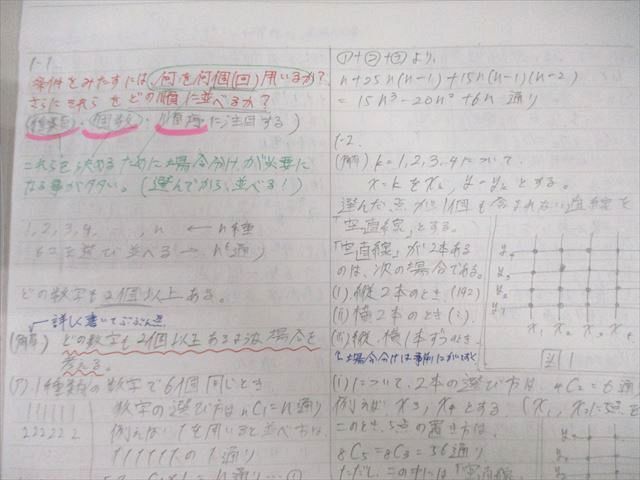 1-1
条件をみたすには何を何個(回)用いるか?
さらにそれらをどの順に並べるか?
(種類・個数・順番に注目する)
これらを決めるために場合分けが必要に
なる事が多い。(選んでから、並べる!)
1, 2, 3, 4, , n ← n種
6コを選び並べる → n⁶通り
どの数字も2個以上ある。
詳しく書いて
(解) どの数字も2個以上あるような場合を
考える。
(ア) 1種類の数字で6個同じとき
111111 数字の選び方は nC1=n通り
222222 例えば1を用いると並べ方は、
111111の1通り
①+②+③より、
n+25n(n-1)+15n(n-1)(n-2)
=15n³-20n²+6n 通り
1-2.
(解) k=1,2,3,4について
x=kをxk, y=ykとする。
選んだ点から1個も含まれない直線を
「空直線」とする。
「空直線」が2本ある
のは、次の場合である。
(i) 縦2本のとき
(ii) 横2本のとき
(iii) 縦、横1本ずつのとき
y4
y3
y2
y1
x1 x2 x3 x4
(i)について、2本の選び方は 4C2=6通り
例えば x3, x4とする。
このとき、5点の置き方は、
8C5=8C3=56通り
ただし、この中には「空直線